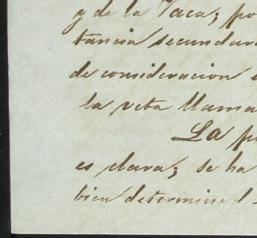 y de la Vaca; po
tancia secundar
de consideracion e
la veta llama
La p
es clara; se ha
bien determine l